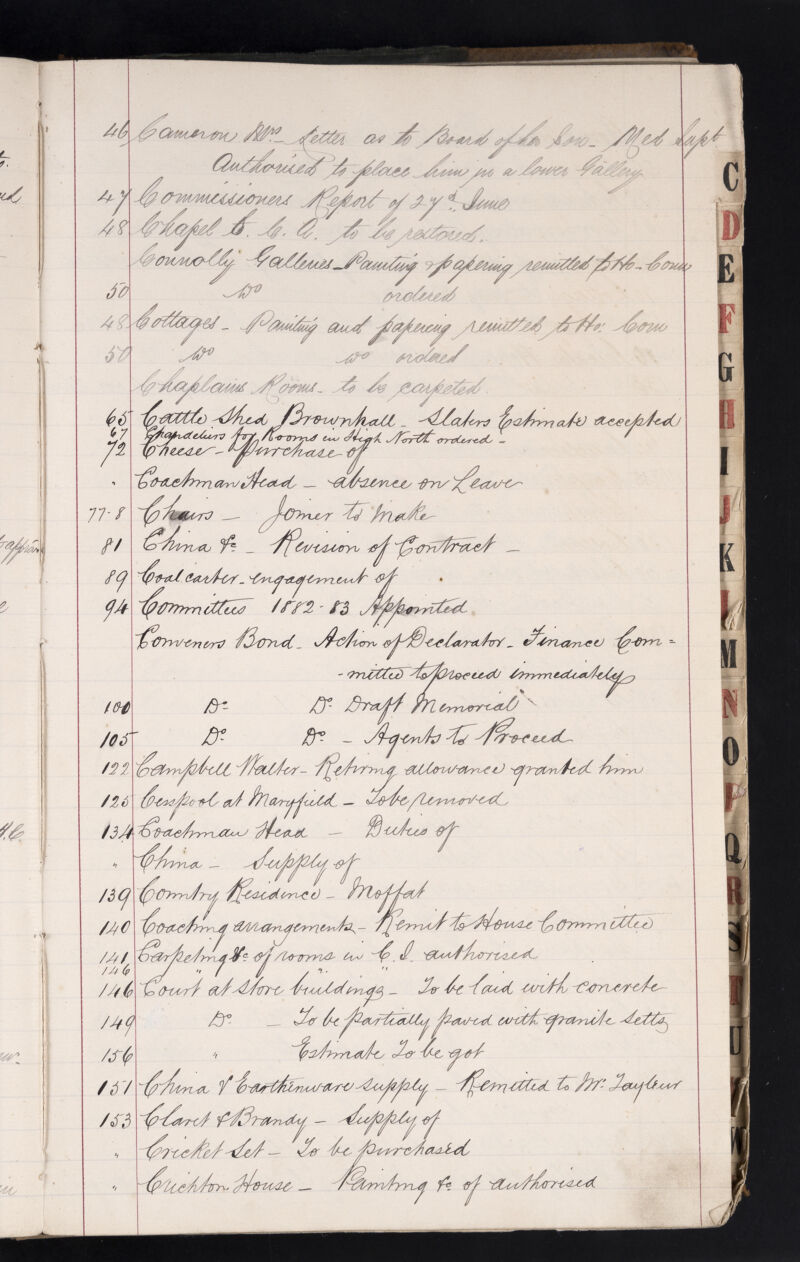 46 Cameron Mrs - Letter as to Board of her Son - Med Supt
Authorised to place him in a lower Gallery
47 Commissioners Report of 27th June
48 Chapel to C. A. to be restored.
Connolly Galleries - Painting & papering remitted to Ho - Com
50 Do ordered
48 Cottages - Painting and papering remitted to Ho: Com
50 Do Do ordered
Chaplains Rooms - to be carpeted
65 Cattle Shed Brownhall - Slaters Estimate accepted
67 Chandeliers for Rooms in High North ordered -
72 Cheese - Purchase of
" Coachman Head - absence on Leave
77-8 Chairs - Joiner to Make
81 China &c - Revision of Contract -
89 Coal carter - engagement of
94 Committees 1882-83 Appointed
Conveners Bond - Action of Declarator - Finance Com=
-mittee to proceed immediately
100 Do Do Draft Memorial
105 Do Do - Agents to Proceed
122 Campbell Walter - Retiring allowance granted him
125 Cesspool at Maryfield - To be removed
134 Coachman Head - Duties of
" China - Supply of
139 Country Residence - Moffat
140 Coaching arrangements - Remit to House Committee
141 Carpeting &c of rooms in C. I. authorised
146 " "
146 Court at Store buildings - To be laid with concrete
149 Do - To be partially paved with granite setts
156 " Estimate To be got
151 China & Earthenware supply - Remitted to Mr. Tayleur
153 Claret & Brandy - Supply of
" Cricket Set - To be purchased
" Crichton House - Painting &c of authorised
C
D
E
F
G
H
I
J
K
M
N
O
P
Q
R
S
T
U
W